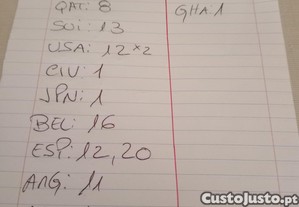 QAT: 8
SUI: 13
USA: 12 x2
CIV: 1
JPN: 1
BEL: 16
ESP: 12, 20
ARG: 11
GHA: 1
CustoJusto.pt